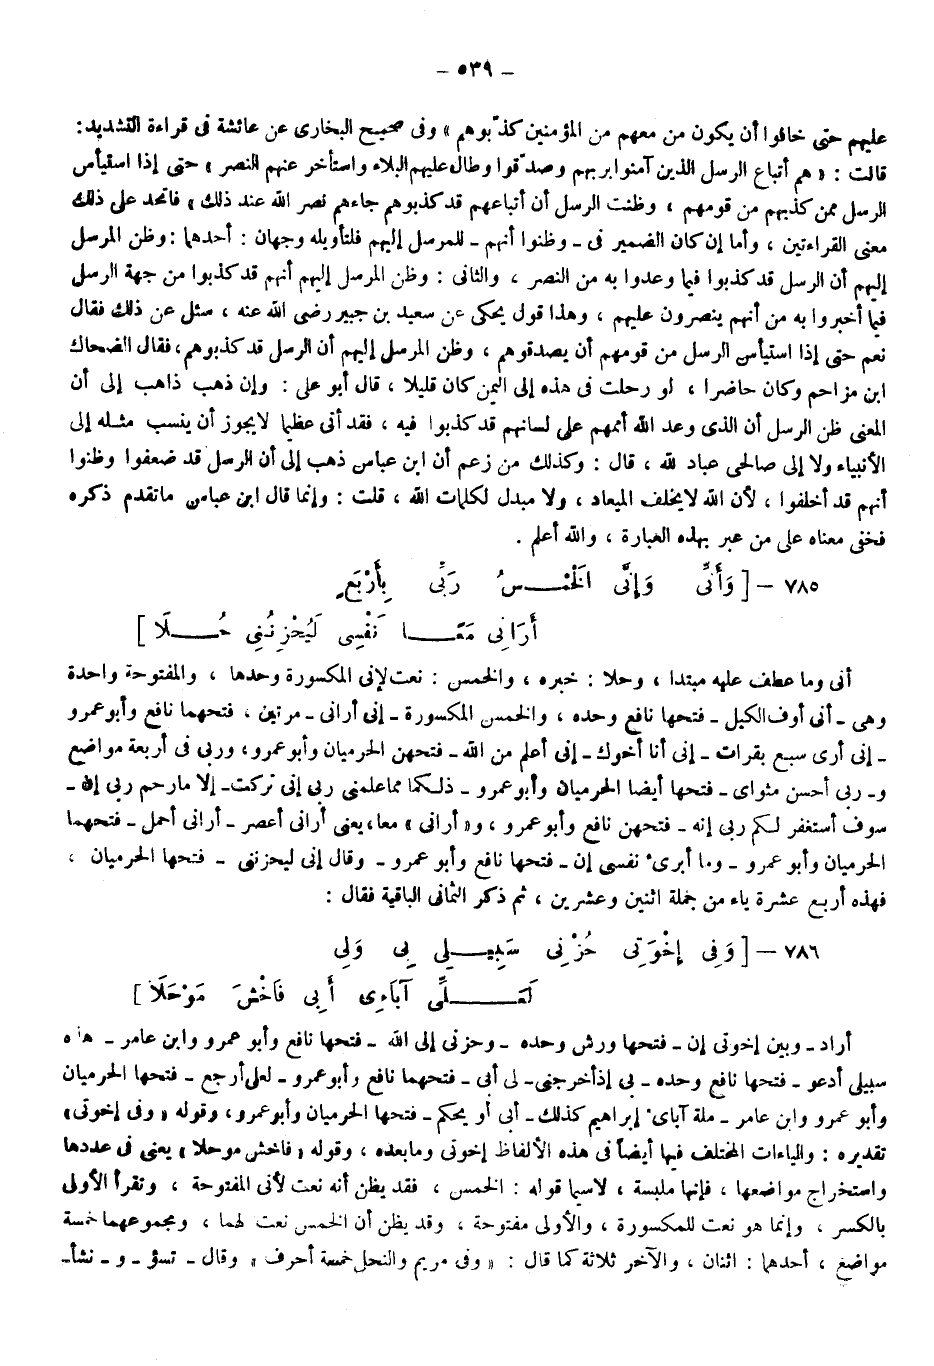 - ٥٣٩ -
عليهم حتى خافوا أن يكون من معهم من المؤمنين كذّبوهم » وفى صحيح البخارى عن عائشة فى قراءة التشديد :
قالت : « هم أتباع الرسل الذين آمنوا بربهم وصدّقوا وطال عليهم البلاء واستأخر عنهم النصر » حتى إذا استيأس
الرسل ممن كذبهم من قومهم ، وظنت الرسل أن أتباعهم قد كذبوهم جاءهم نصر الله عند ذلك » فاتحد على ذلك
معنى القراءتين ، وأما إن كان الضمير فى - وظنوا أنهم - للمرسل إليهم فلتأويله وجهان : أحدهما : وظن المرسل
إليهم أن الرسل قد كذبوا فيما وعدوا به من النصر ، والثانى : وظن المرسل إليهم أنهم قد كذبوا من جهة الرسل
فيما أخبروا به من أنهم ينصرون عليهم ، وهذا قول يحكى عن سعيد بن جبير رضى الله عنه ، سئل عن ذلك فقال
نعم حتى إذا استيأس الرسل من قومهم أن يصدقوهم ، وظن المرسل إليهم أن الرسل قد كذبوهم ، فقال الضحاك
ابن مزاحم وكان حاضرا ، لو رحلت فى هذه إلى اليمن كان قليلا ، قال أبو على : وإن ذهب ذاهب إلى أن
المعنى ظن الرسل أن الذى وعد الله أممهم على لسانهم قد كذبوا فيه ، فقد أتى عظيما لا يجوز أن ينسب مثله إلى
الأنبياء ولا إلى صالحى عباد لله ، قال : وكذلك من زعم أن ابن عباس ذهب إلى أن الرسل قد ضعفوا وظنوا
أنهم قد أخلفوا ، لأن الله لا يخلف الميعاد ، ولا مبدل لكلمات الله ، قلت : وإنما قال ابن عباس ماتقدم ذكره
فخفى معناه على من عبر بهذه العبارة ، والله أعلم .
٧٨٥ - [ وَأَنِّى وَإِنِّى الْخَمْسُ رَبِّى بِأَرْبَعٍ
أَرَانِى مَعًا نَفْسِى لَيُحْزِنُنِى حُلَا ]
أنى وما عطف عليه مبتدا ، وحلا : خبره ، والخمس : نعت لإنى المكسورة وحدها ، والمفتوحة واحدة
وهى - أنى أوف الكيل - فتحها نافع وحده ، والخمس المكسورة - إنى أرانى - مرتين ، فتحهما نافع وأبو عمرو
- إنى أرى سبع بقرات - إنى أنا أخوك - إنى أعلم من الله - فتحهن الحرميان وأبو عمرو ، وربى فى أربعة مواضع
و - ربى أحسن مثواى - فتحها أيضا الحرميان وأبو عمرو - ذلكما مما علمنى ربى إنى تركت - إلا مارحم ربى إن -
سوف أستغفر لكم ربى إنه - فتحهن نافع وأبو عمرو ، و« أرانى » معا، يعنى أرانى أعصر - أرانى أحمل - فتحهما
الحرميان وأبو عمرو - وما أبرىء نفسى إن - فتحها نافع وأبو عمرو - وقال إنى ليحزننى - فتحها الحرميان ،
فهذه أربع عشرة ياء من جملة اثنين وعشرين ، ثم ذكر الثمانى الباقية فقال :
٧٨٦ - [ وَفِى إِخْوَتِى حُزْنِى سَبِيلِى بِى وَلِى
لَعَلِّى آبَاءِى أَبِى فَاخْشَ مَوْحَلَا ]
أراد - وبين إخوتى إن - فتحها ورش وحده - وحزنى إلى الله - فتحها نافع وأبو عمرو وابن عامر - هذه
سبيلى أدعو - فتحها نافع وحده - بى إذ أخرجنى - لى أبى - فتحهما نافع وأبو عمرو - لعلى أرجع - فتحها الحرميان
وأبو عمرو وابن عامر - ملة آباىء إبراهيم كذلك - أبى أو يحكم - فتحها الحرميان وأبو عمرو ، وقوله « وفى إخوتى »
تقديره : والياءات المختلف فيها أيضاً فى هذه الألفاظ إخوتى ومابعده ، وقوله « فاخش موحلا » يعنى فى عددها
واستخراج مواضعها ، فإنها ملبسة ، لاسيما قوله : الخمس ، فقد يظن أنه نعت لأنى المفتوحة ، وتقرأ الأولى
بالكسر ، وإنما هو نعت للمكسورة ، والأولى مفتوحة ، وقد يظن أن الخمس نعت لهما ، ومجموعهما خمسة
مواضع ، أحدهما : اثنان ، والآخر ثلاثة كما قال : « وفى مريم والنحل خمسة أحرف » وقال - تسؤ - و - نشأ -